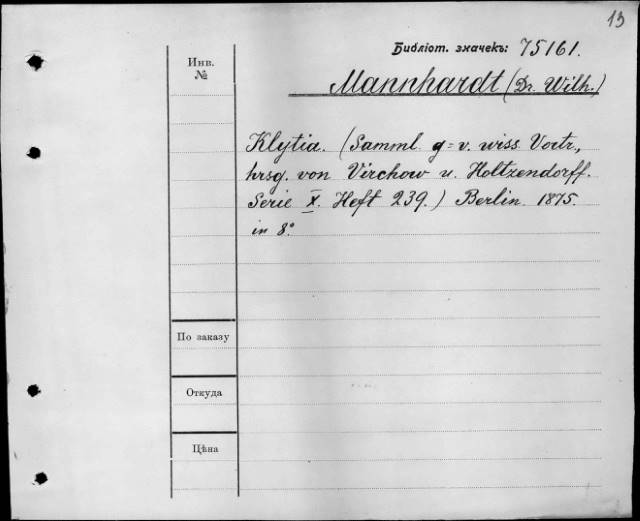 13
Библіот. значекъ: 75161.
Инв.
№
Mannhardt (Dr. Wilh.)
Klytia. (Samml. g=v. wiss. Vortr.,
hrsg. von Virchow u. Holtzendorff.
Serie X. Heft 239.) Berlin. 1875.
in 8°
По заказу
Откуда
Цѣна